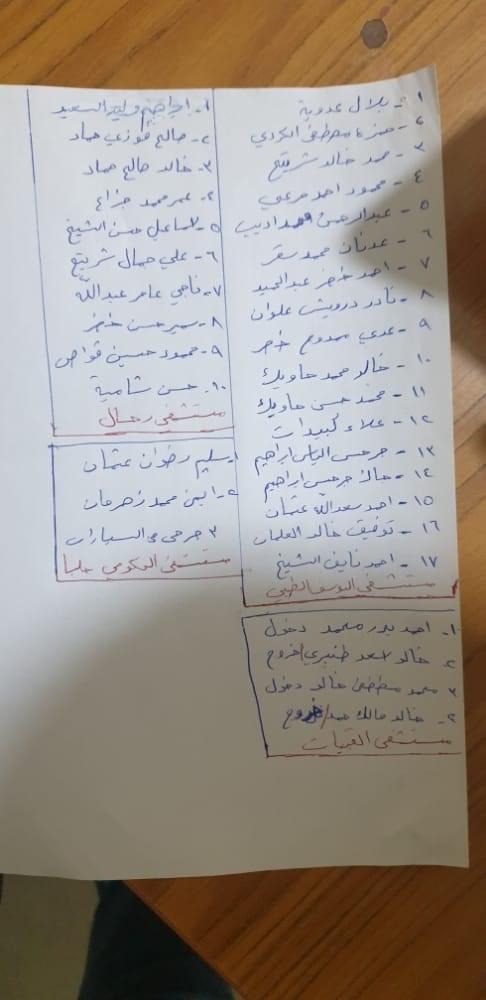 ١- بلال عدوية
٢- حمزة مصطفى الكردي
٣- محمد خالد شريتح
٤- محمود احمد مرعي
٥- عبدالرحمن محمد اديب
٦- عدنان محمد سقر
٧- احمد خضر عبدالحميد
٨- نادر درويش علوان
٩- عدي ممدوح خضر
١٠- خالد محمد حاويك
١١- محمد حسن حاويك
١٢- علاء كبيدات
١٣- جرجس الياس ابراهيم
١٤- مالك جرجس ابراهيم
١٥- احمد سعدالله عثمان
١٦- توفيق خالد العلمان
١٧- احمد نايف الشيخ
مستشفى اليوسف الطبي
١. احمد بدر محمد دخول
٢- خالد اسعد طنبري/خروج
٣ محمد مصطفى خالد دخول
٤- خالد مالك حمد/خروج
مستشفى القبيات
١- ابراهيم وليد السعيد
٢- صالح فوزي حماد
٣. خالد صالح حماد
٤- عمر محمد جزاع
٥- اسماعيل حسن الشيخ
٦- علي جمال شريتح
٧- ناجي عامر عبدالله
٨- سمير حسن خضر
٩- محمود حسين قواص
١٠. حسن شامية
مستشفى رحال
١. سليم رضوان عثمان
٢- محمد زهرمان
٣ جرحى مع السيارات
مستشفى الحكومي حلبا